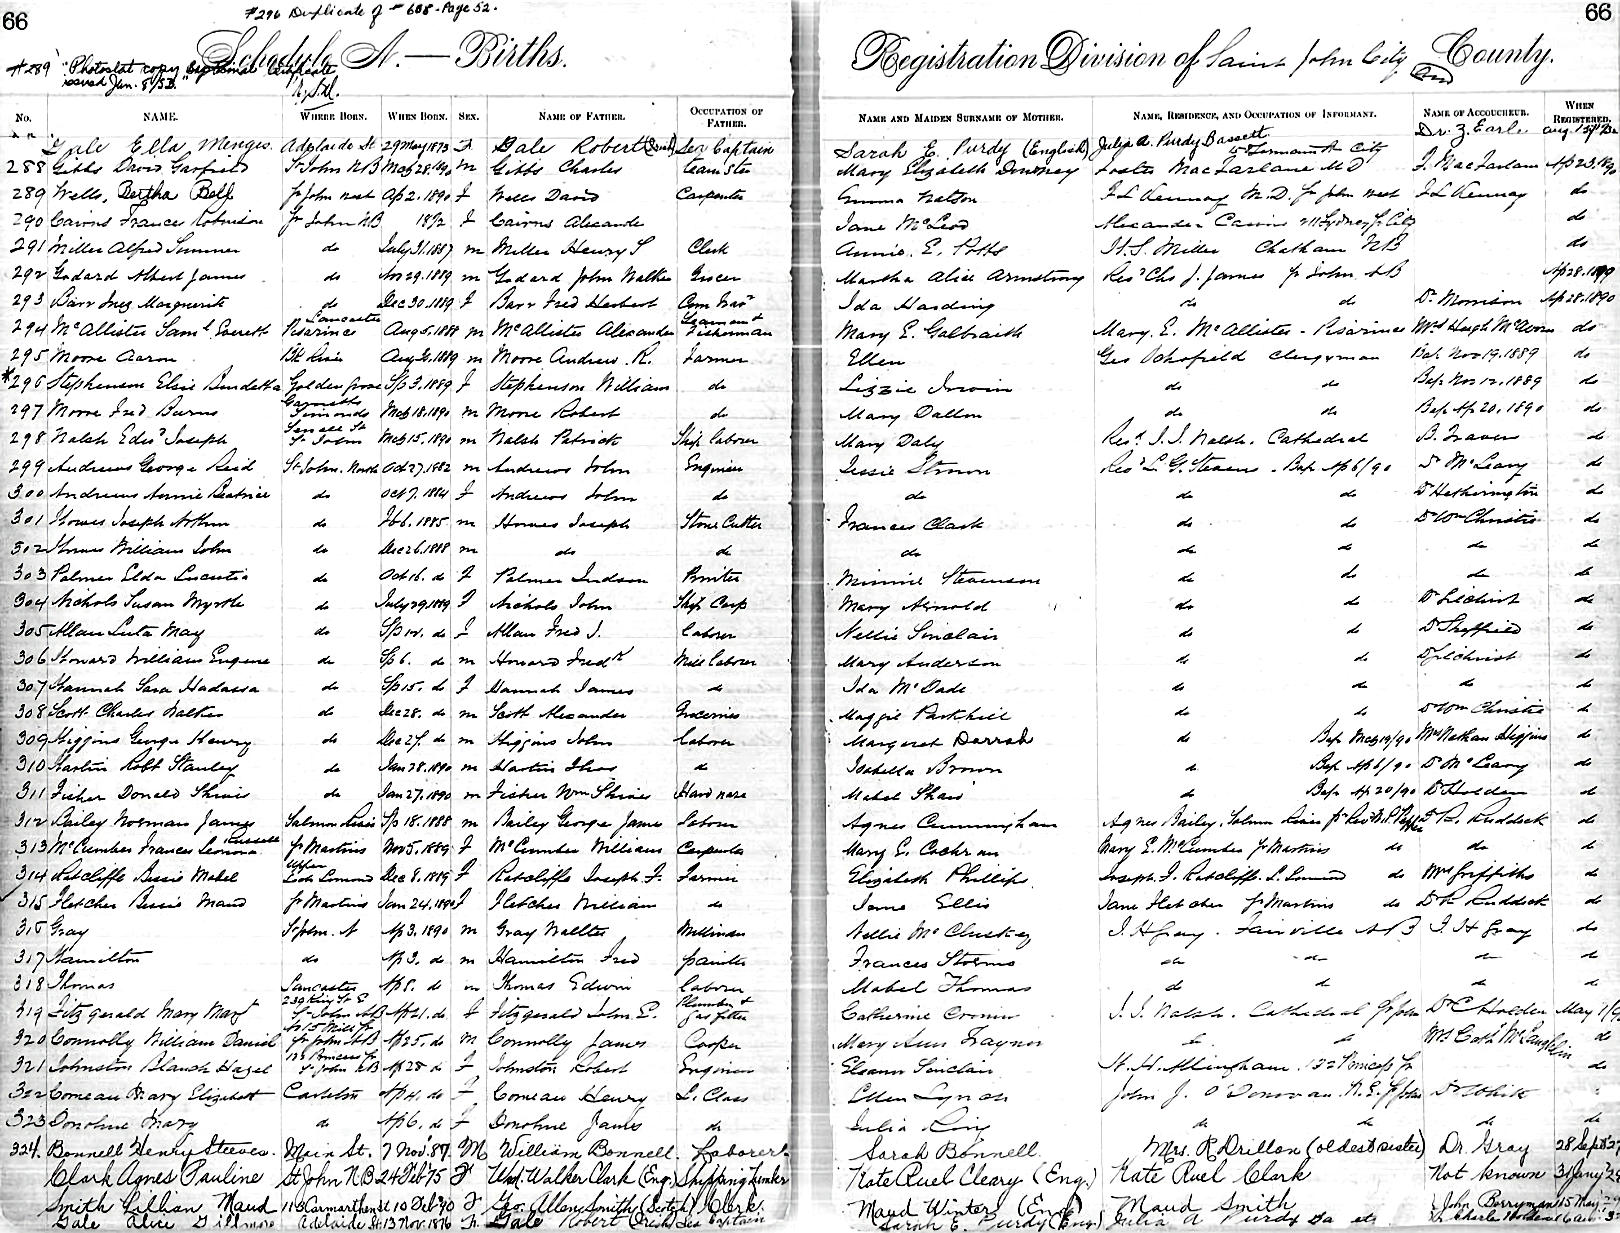 66
#296 Duplicate of #608 - Page 52.
Schedule A. — Births.
#289 "Photostat copy Certificate
issued Jan. 8/53."
No. NAME. WHERE BORN. WHEN BORN. SEX. NAME OF FATHER. OCCUPATION OF FATHER.
Gale Ella Menges. Adelaide St 29 May 1873 F. Gale Robert Sea Captain
288 Gibbs David Garfield St John NB Mch 28.1890 m Gibbs Charles teamster
289 Wells, Bertha Bell St John west Ap 2. 1890 F Wells David Carpenter
290 Cairns Frances Robinson St John NB 1872 F Cairns Alexander
291 Miller Alfred Sumner do July 31.1887 m Miller Henry S Clerk
292 Godard Albert James do Nov 29.1889 m Godard John Walker Grocer
293 Barr Inez Marguerite do Dec 30.1889 F Barr Fred Herbert Com Trav
294 McAllister Saml Everett Lancaster Pisarinco Aug 5.1888 m McAllister Alexander Fisherman
295 Moore Aaron Bk River Aug 6.1889 m Moore Andrew R. Farmer
*296 Stephenson Elsie Golden Grove Sp 3.1889 F Stephenson William do
297 Moore Fred Burns Simonds Mch 18.1890 m Moore Robert do
298 Walsh Edwd Joseph St John Mch 15.1890 m Walsh Patrick Ship labourer
299 Andrews George Reid St John. North Oct 27.1882 m Andrews John Engineer
300 Andrews Annie Beatrice do Oct 7.1884 F Andrews John do
301 Howes Joseph Arthur do Feb 6.1885 m Howes Joseph Stone Cutter
302 Howes William John do Dec 26.1888 m do do
303 Palmer Elda Lucretia do Oct 16. do F Palmer Judson Printer
304 Nichols Susan Myrtle do July 29.1889 F Nichols John Ship Carp
305 Allan Luta May do Sp 12. do F Allan Fred J. Laborer
306 Howard William Eugene do Sp 6. do m Howard Fredk Mill laborer
307 Hannah Sara Hadassa do Sp 15. do F Hannah James do
308 Scott Charles Walker do Dec 28. do m Scott Alexander Groceries
309 Higgins George Henry do Dec 27. do m Higgins John laborer
310 Martin Robt Stanley do Jan 28.1890 m Martin Thos do
311 Fisher Donald Shives do Jan 27.1890 m Fisher Wm Shives Hardware
312 Bailey Norman James Salmon River Sp 18.1888 m Bailey George James Labourer
313 McCumber Frances Leonora Russell St Martins Nov 5.1889 F McCumber William Carpenter
314 Ratcliffe Bessie Mabel Upper Loch Lomond Dec 8.1889 F Ratcliffe Joseph F. Farmer
315 Fletcher Bessie Maud St Martins Jan 24.1890 F Fletcher William do
316 Gray St John. N Ap 3. 1890 m Gray Walter Millman
317 Hamilton do Ap 3. do m Hamilton Fred painter
318 Thomas Lancaster Ap 8. do m Thomas Edwin laborer
319 Fitzgerald Mary Margt 239 King St E St John NB Ap 21. do F Fitzgerald John E. Plumber & gas fitter
320 Connolly William Daniel 15 Mill St St John NB Ap 25. do m Connolly James Cooper
321 Johnston Blanch Hazel 132 Princess St St John NB Ap 28 do F Johnston Robert Engineer
322 Comeau Mary Elizabeth Carleton Ap 4. do F Comeau Henry L. Class
323 Donohue Mary do Ap 6. do F Donohue James do
324. Bonnell Henry Steeves. Main St. 7 Nov. '87. M William Bonnell. Laborer
Clark Agnes Pauline St John N B 24 Feb '75 F Wm. Walker Clark (Eng.) Shipping Lumber
Smith Lillian Maud 113 Carmarthen St 10 Dec '90 F Geo. Allan Smith (Scotch) Clerk.
Gale Alice Gillmore Adelaide St 13 Nov. 1876 F. Gale Robert (Irish) Sea Captain
66
Registration Division of Saint John City and County.
NAME AND MAIDEN SURNAME OF MOTHER. NAME, RESIDENCE, AND OCCUPATION OF INFORMANT. NAME OF ACCOUCHEUR. WHEN REGISTERED.
Sarah E. Purdy (English) Julia A. Purdy Bassett City Dr. Z. Earle
Mary Elizabeth Downey Foster MacFarlane MD F. MacFarlane Ap 23.1890
Emma Nelson J L Kenney M.D. St John west J L Kenney do
Jane McLeod Alexander Cairns 211 Sydney St City do
Annie. E. Potts H. S. Miller Chatham NB do
Martha Alice Armstrong Revd Chs J. James St John NB Ap 28.1890
Ida Harding do do Dr Morrison Ap 28.1890
Mary E. Galbraith Mary. E. McAllister - Pisarinco Mrs Hugh do
Ellen Geo Schofield Clergyman Bap. Nov 19.1889 do
Lizzie Irwin do do Bap. Nov 12.1889 do
Mary Dalton do do Bap Ap 20. 1890 do
Mary Daly Revd J. J. Walsh. Cathedral B. Travers do
Jessie Revd L. G. Stevens. Bap Ap 6/90 Dr McLeary do
do do do Dr Hetherington do
Frances Clark do do Dr Wm Christie do
do do do do do
Minnie Stevenson do do do do
Mary Arnold do do Dr Gilchrist do
Nellie Sinclair do do Dr Sheffield do
Mary Anderson do do Dr Gilchrist do
Ida McDade do do do do
Maggie Parkhill do do Dr Wm Christie do
Margaret Darrah do Bap Mch 19/90 Mrs Nathan Higgins do
Isabella Brown do Bap. Ap 6/90 Dr McLeary do
Mabel Shaw do Bap. Ap 20/90 Dr Holden do
Agnes Cunningham Agnes Bailey. Salmon River Dr R. Ruddick do
Mary E. Cochran Mary E. McCumber St Martins do do do
Elizabeth Phillips Joseph. F. Ratcliffe. L. Lomond do Mrs Griffiths do
Jane Ellis Jane Fletcher St Martins do Dr R Ruddick do
Nellie McCluskey J. H Gray. Fairville NB J. H Gray do
Frances Storms do do do do
Mabel Thomas do do do do
Catherine Cronin J. J. Walsh. Cathedral St John Dr C Holden May 1/90
Mary Ann Traynor do do Mrs Cath McLaughlin do
Eleanor Sinclair H. H. Allingham. 132 Princess St do
Ellen Lynch John J. O'Donovan. St John Dr White "
Julia King do do do do
Sarah Bonnell. Mrs. R. Drillon (oldest sister) Dr. Gray 28 Sept.
Kate Ruel Cleary (Eng.) Kate Ruel Clark Not known 31 Jany
Maud Winter (Eng) Maud Smith John Berryman 15 May
Sarah E. Purdy (Eng) Julia A Purdy Dr Charles Holden